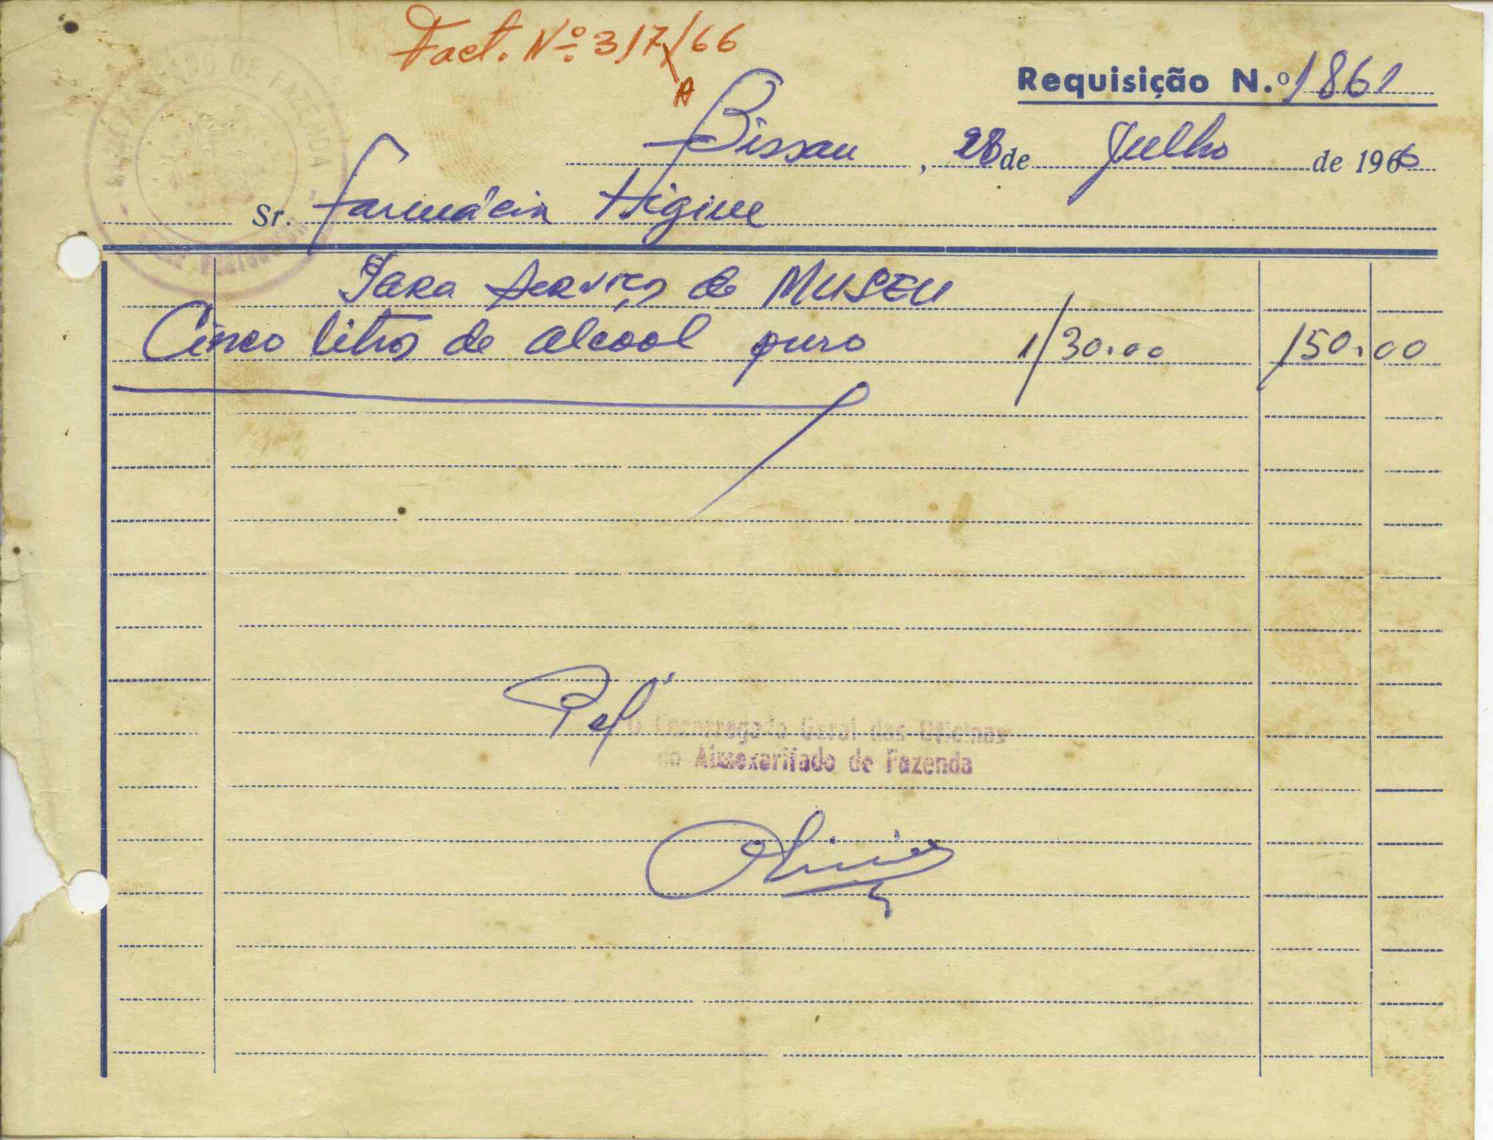 Fact. Nº 317/66
A
Requisição N.º 1861
Bissau, 28 de Julho de 1966
Sr. Farmácia Higiene
Para Serviço do MUSEU
Cinco litros de alcool puro 1/30.00 150.00
Pel'
O Encarregado Geral das Oficinas
do Almoxarifado de Fazenda